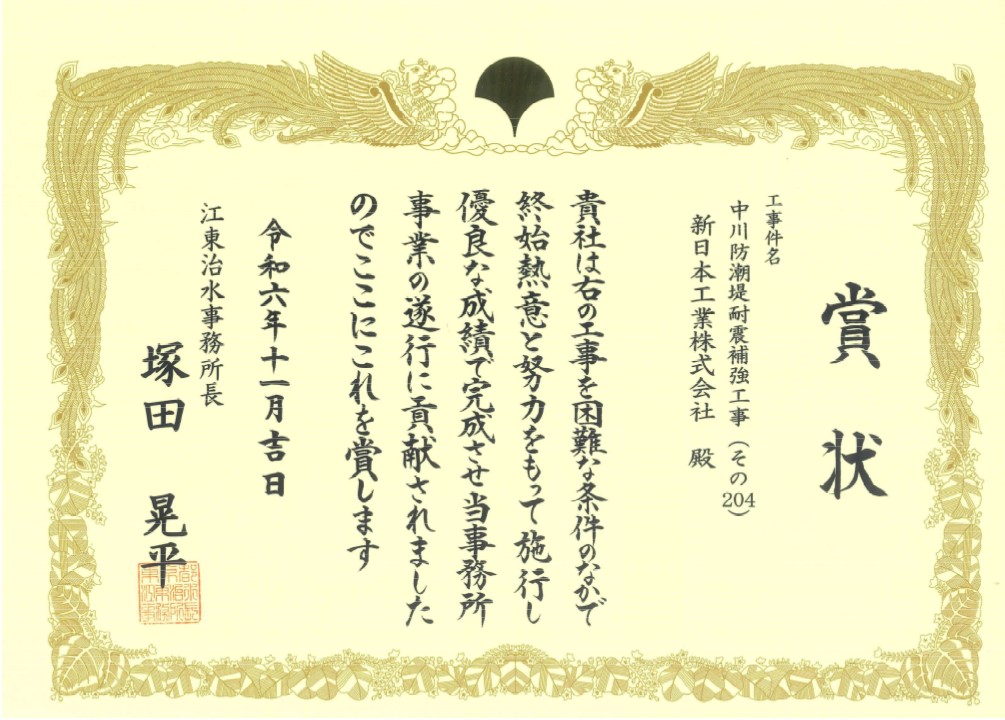 賞状
工事件名
中川防潮堤耐震補強工事(その204)
新日本工業株式会社 殿
貴社は右の工事を困難な条件のなかで
終始熱意と努力をもって施行し
優良な成績で完成させ当事務所
事業の遂行に貢献されました
のでここにこれを賞します
令和六年十一月吉日
江東治水事務所長
塚田 晃平